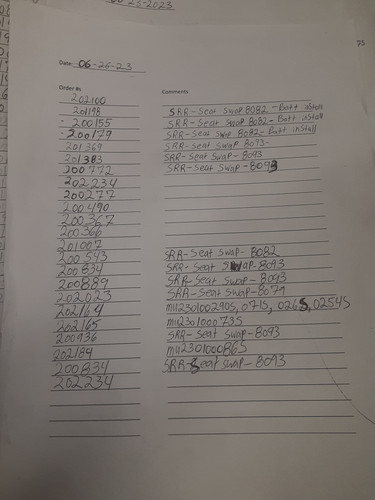 06-23-2023
95
Date: 06-26-23
Order #s Comments
202100 SRR-Seat Swap 8082-Batt install
201198 SRR-Seat Swap 8082-Batt install
- 200155 SRR-Seat Swap 8082-Batt install
- 200179 SRR-Seat Swap 8093-
201369 SRR-Seat Swap-8093
201383 SRR-Seat Swap-8093
200772
202234
200277
200490
200367
200366
201007 SRR-Seat Swap-8082
200543 SRR-Seat Swap-8093
200834 SRR-Seat Swap-8093
200889 SRR-Seat Swap-8079
202023 mu2301002905, 0715, 0265, 02545
202164 mu2301000735
202165 SRR-Seat Swap-8093
200936 mu2301000865
202184 SRR-Seat Swap-8093
200834
202234